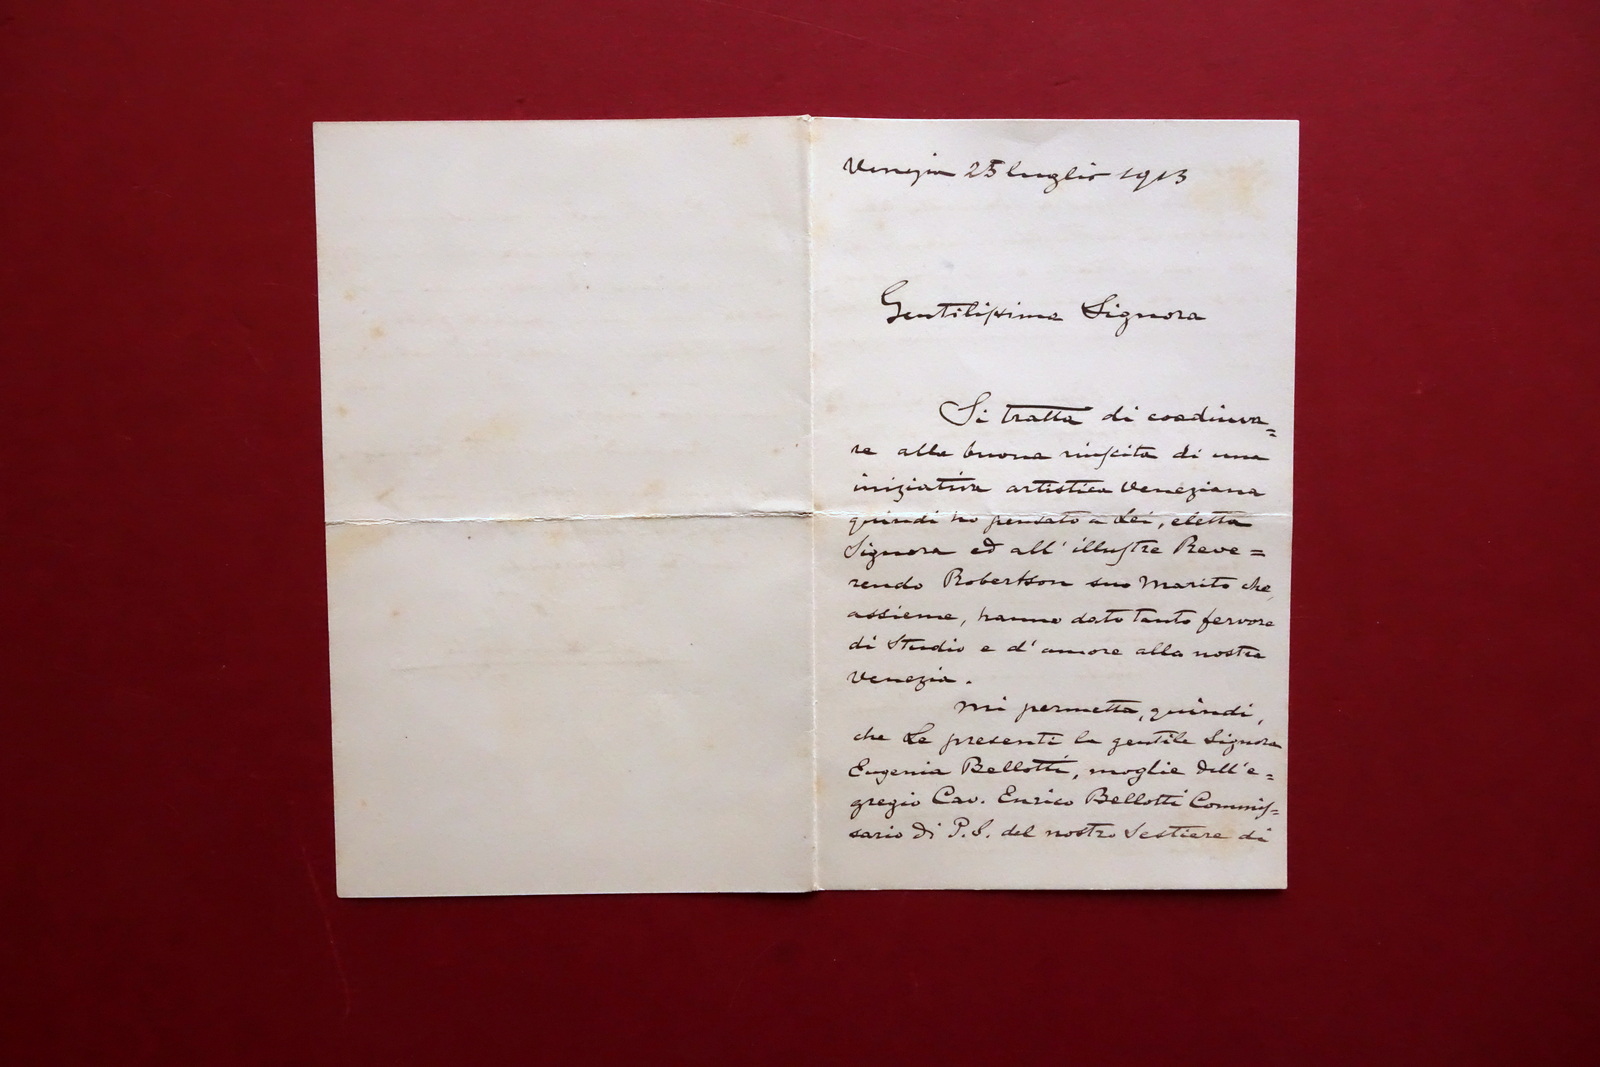 Venezia 25 luglio 1913
Gentilissima Signora
Si tratta di coadiuva=
re alla buona riuscita di una
iniziativa artistica Veneziana
quindi ho pensato a Lei, eletta
Signora ed all' illustre Reve=
rendo Robertson suo Marito che,
assieme, hanno dato tanto fervore
di Studio e d' amore alla nostra
Venezia.
Mi permetta, quindi,
che Le presenti la gentile Signora
Eugenia Bellotti, moglie dell' e=
gregio Cav. Enrico Bellotti Commis=
sario di P.S. del nostro Sestiere di